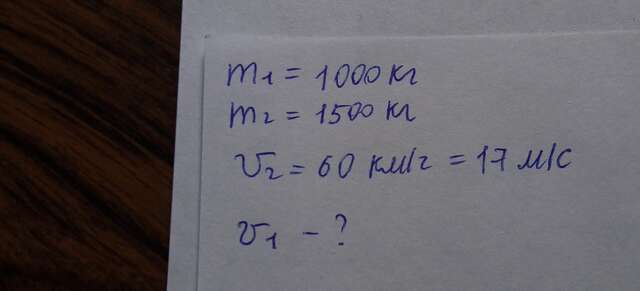 m₁ = 1000 кг
m₂ = 1500 кг
υ₂ = 60 км/г = 17 м/с
υ₁ - ?